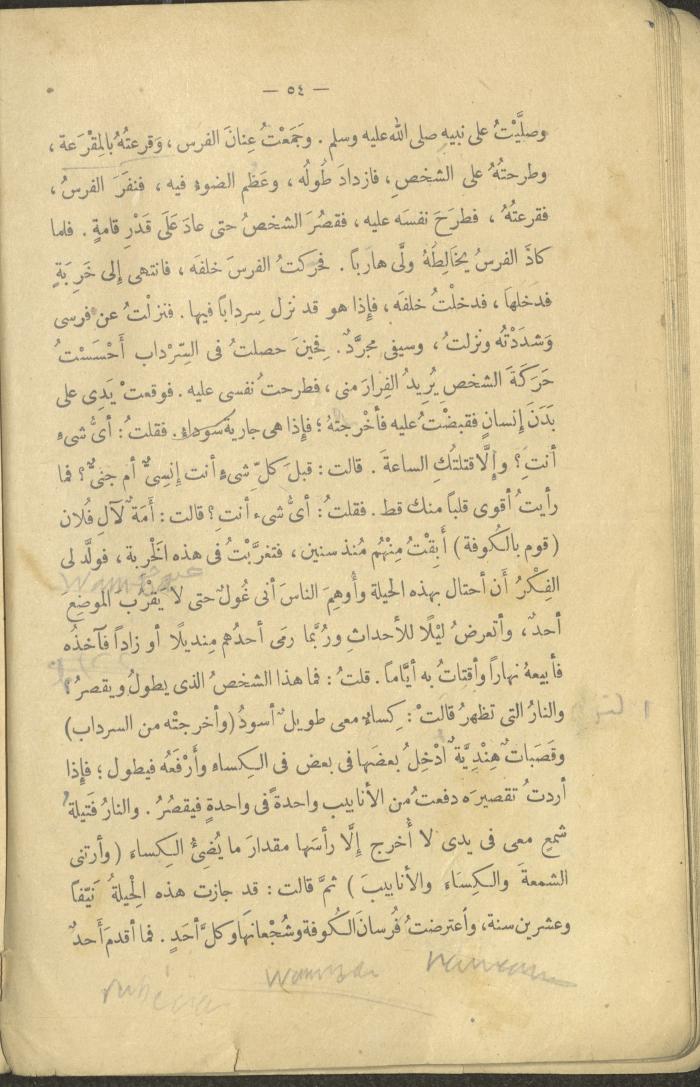 — ٥٤ —
وصلَّيْتُ على نبيه صلى الله عليه وسلم . وجَمَعْتُ عِنانَ الفرس ، وَقرعتُهُ بالمِقْرَعة ،
وطرحتُهُ على الشخصِ ، فازدادَ طُولُه ، وعَظُم الضوء فيه ، فنفَرَ الفرسُ ،
فقرعتُهُ ، فطرَحَ نفسَه عليه ، فقصُرَ الشخصُ حتى عادَ عَلَى قَدْرِ قامةٍ . فلما
كادَ الفرسُ يخالِطُهُ ولَّى هارباً . فحركتُ الفرسَ خلفَه ، فانتهى إلى خَرِبَةٍ
فدخلها ، فدخلتُ خلفَه ، فإذا هو قد نزل سِرداباً فيها . فنزلْتُ عن فرسى
وَشدَدْتُه ونزلتُ ، وسيفى مجرَّدٌ . فحينَ حصلتُ فى السِّرْداب أَحْسَسْتُ
حَرَكَةَ الشخصِ يُرِيدُ الفِرارَ منى ، فطرحتُ نفسى عليه . فوقعتْ يَدِى على
بَدَنِ إنسانٍ فقبضْتُ عليه فأخْرجتُهُ ؛ فإذا هى جاريةٌ سوداءُ . فقلتُ : أىُّ شىءٍ
أنتِ ؟ وإلَّا قتلتُكِ الساعةَ . قالت : قبلَ كلِّ شىءٍ أنت إنسِىٌّ أم جنىٌّ ؟ فما
رأيتُ أقوى قلباً منك قط . فقلتُ : أىُّ شىء أنتِ ؟ قالت : أَمَةٌ لآلِ فُلان
( قوم بالكُوفة ) أَبِقْتُ مِنْهُم مُنذ سنين ، فتغرَّبْتُ فى هذه الخَرِبة ، فولَّد لى
الفِكْرُ أن أحتال بهذه الحيلة وأُوهِمَ الناسَ أنى غُولٌ حتى لا يَقْرُبَ الموضِعَ
أحدٌ ، وأتعرضُ ليْلًا للأحداثِ ورُبَّما رمَى أحدُهم مِنديلًا أو زاداً فآخذُه
فأبيعهُ نهاراً وأقتاتُ به أيَّاماً . قلتُ : فما هذا الشخصُ الذى يطولُ ويقصرُ ؟
والنارُ التى تظهرُ قالتْ : كِساءٌ معى طويلٌ أسودُ ( وأخرجتْه من السرداب )
وقَصَباتٌ هِنْدِيَّةٌ أُدْخِلُ بعضَها فى بعض فى الكِساء وأَرْفَعُه فيطول ؛ فإذا
أردتُ تقصيرَه دفعتُ من الأنابيب واحدةً فى واحدةٍ فيقصُرُ . والنارُ فَتيلةُ
شمعٍ معى فى يدى لا أُخرج إلَّا رأسَها مقدارَ ما يُضِئُ الكِساء ( وأرتنى
الشمعةَ والكِسَاء والأنابيبَ ) ثمَّ قالت : قد جازت هذه الحِيلةُ نَيِّفاً
وعشرين سنة ، واُعترضتُ فُرسانَ الكُوفة وشُجْعانَها وكلَّ أحَدٍ . فما أقدمَ أَحدٌ